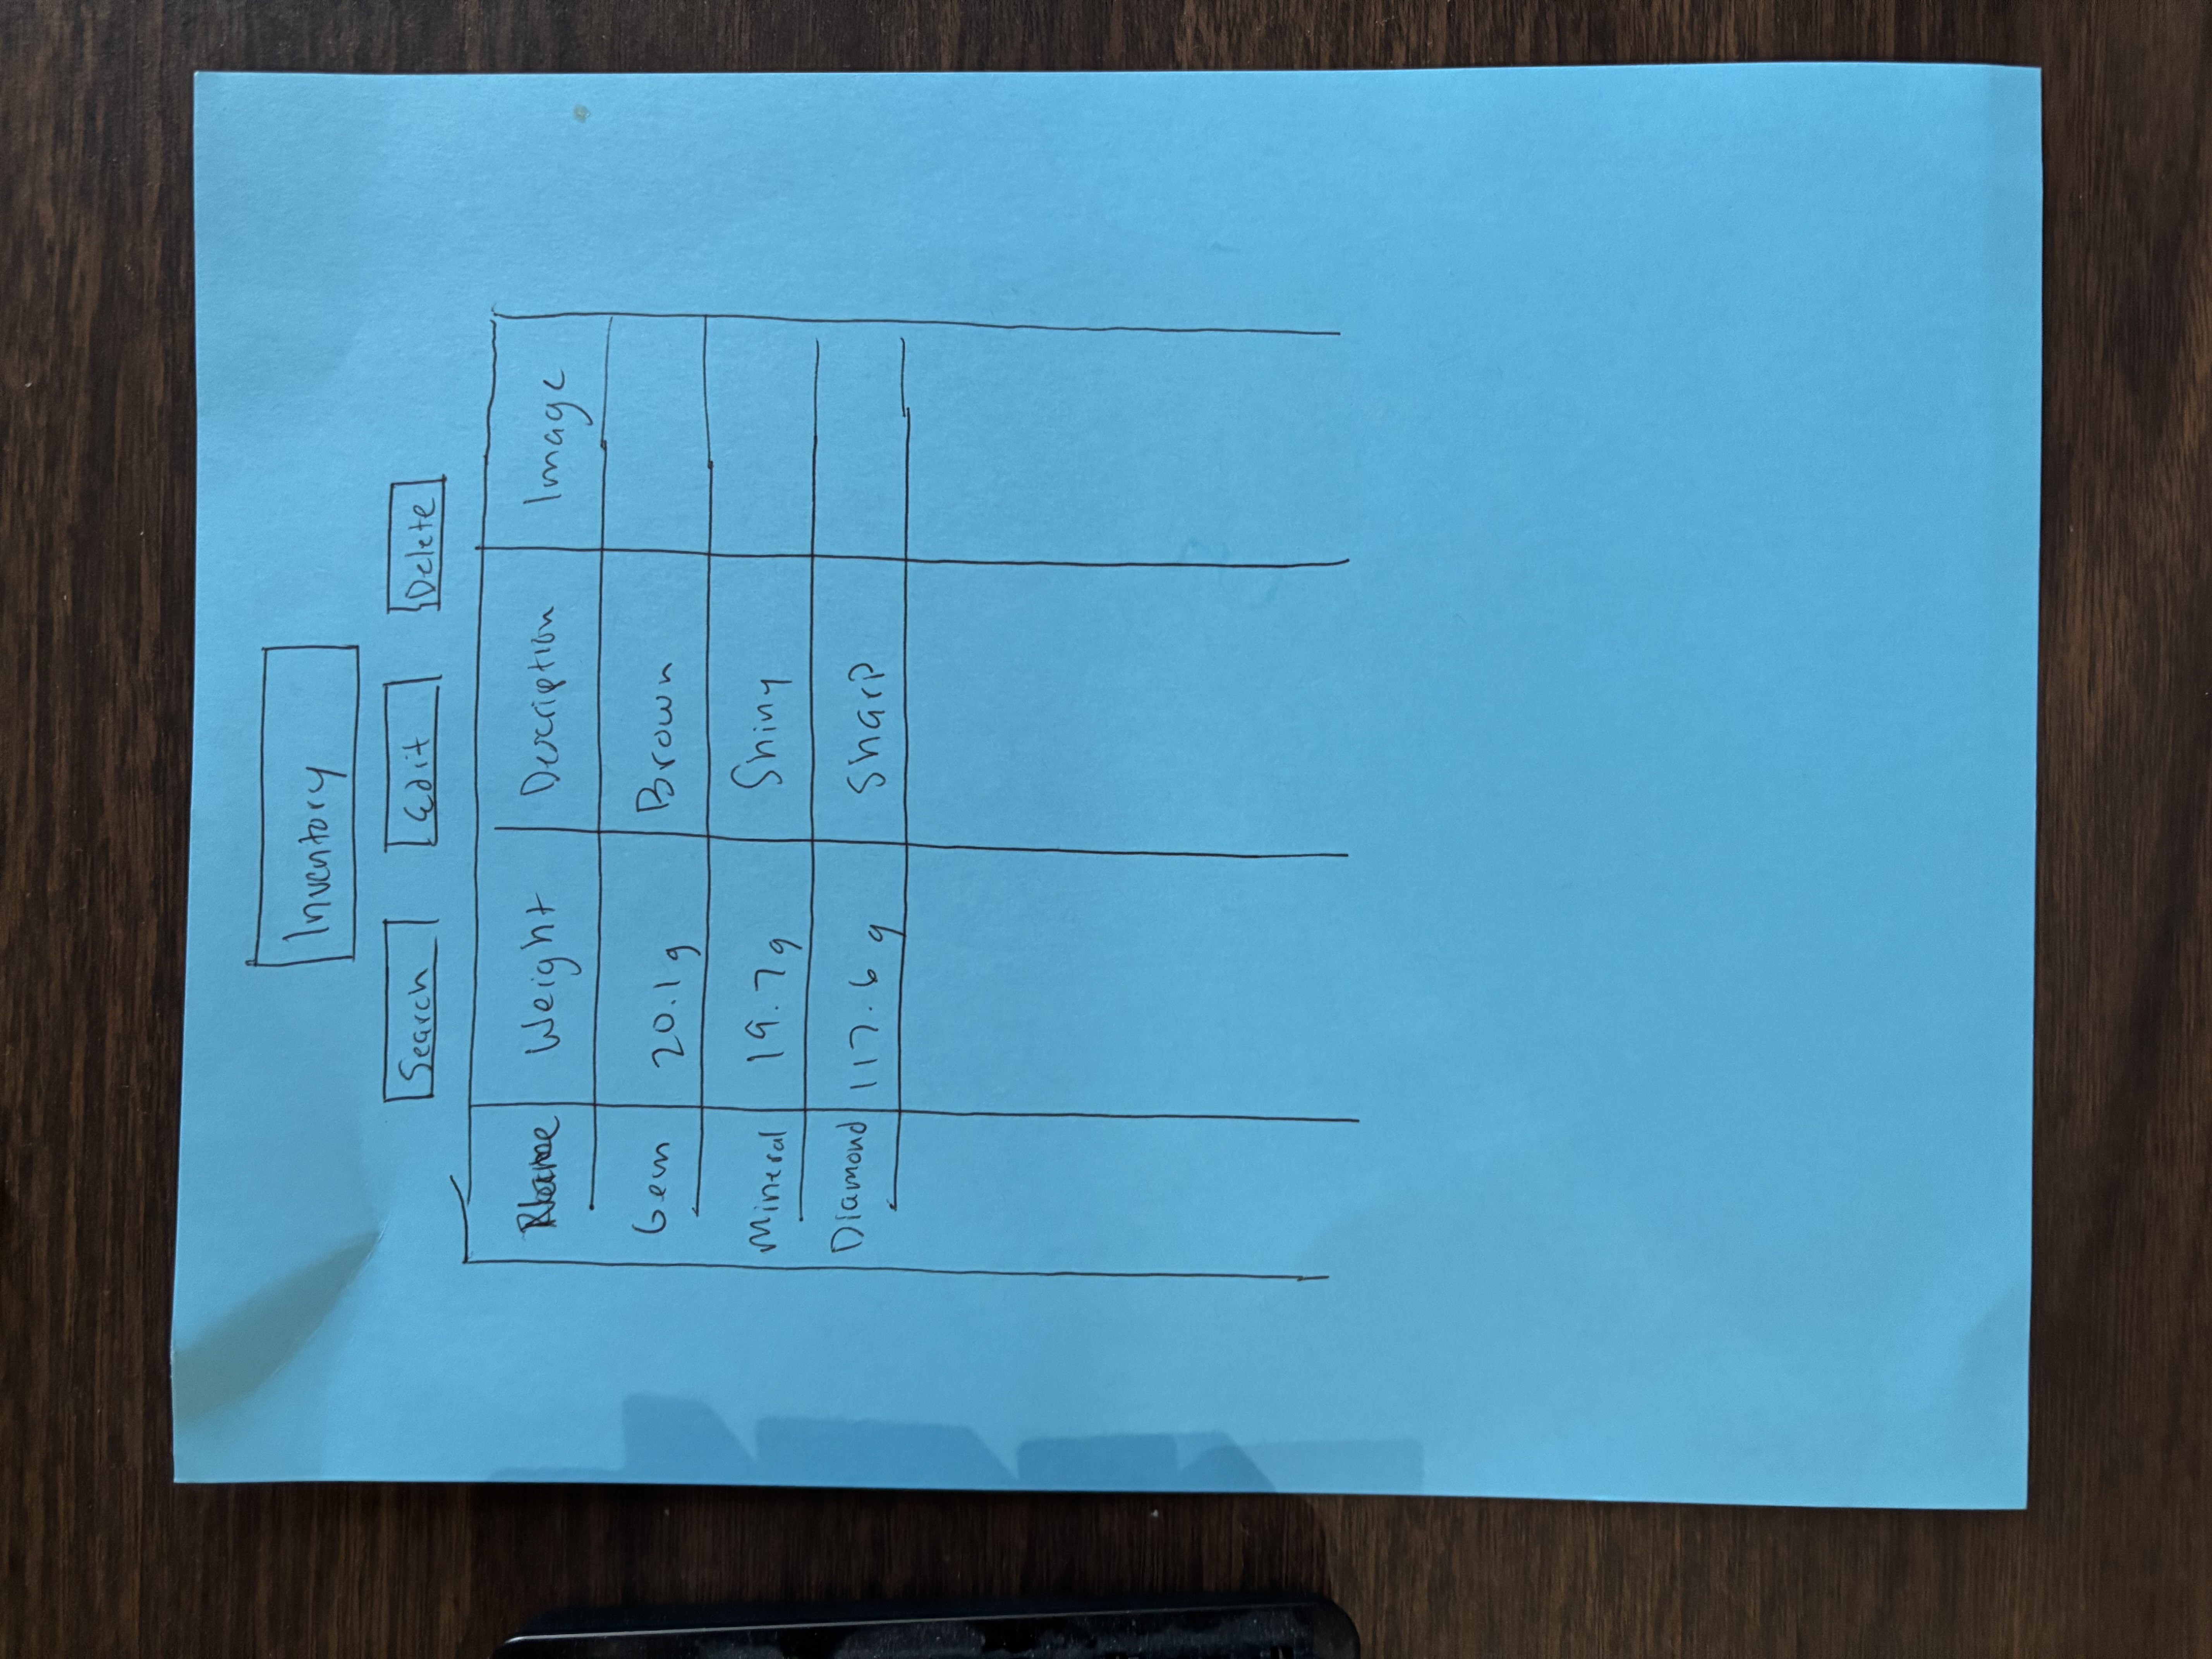 Inventory
Search Edit Delete
Name Weight Description Image
Gem 20.1g Brown
Mineral 19.7g Shiny
Diamond 117.6g Sharp